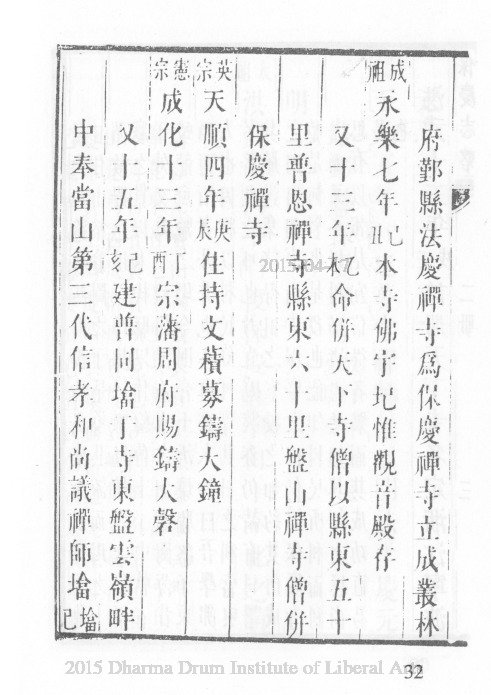 府鄞縣法慶禪寺爲保慶禪寺立成叢林
成祖永樂七年己丑本寺佛宇圮惟觀音殿存
又十三年乙未命併天下寺僧以縣東五十
里普恩禪寺縣東六十里盤山禪寺僧併
保慶禪寺
英宗天順四年庚辰住持文積募鑄大鐘
憲宗成化 年丁酉宗藩周府賜鑄大磬
又 五年己亥建普同墖于寺東盤雲嶺畔
中奉當山第三代信孝和尚議禪師墖墖已
2015/04/27
2015 Dharma Drum Institute of Liberal Arts
32